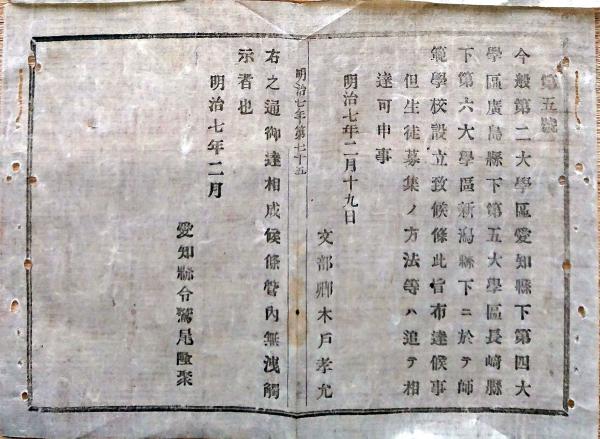 第五號
今般第二大學區愛知縣下第四大
學區廣島縣下第五大學區長崎縣
下第六大學區新潟縣下ニ於テ師
範學校設立致候條此旨布達候事
但生徒募集ノ方法等ハ追テ相
達可申事
明治七年二月十九日
文部卿木戸孝允
明治七年第七十五
右之通御達相成候條管內無洩觸
示者也
明治七年二月
愛知縣令鷲尾隆聚